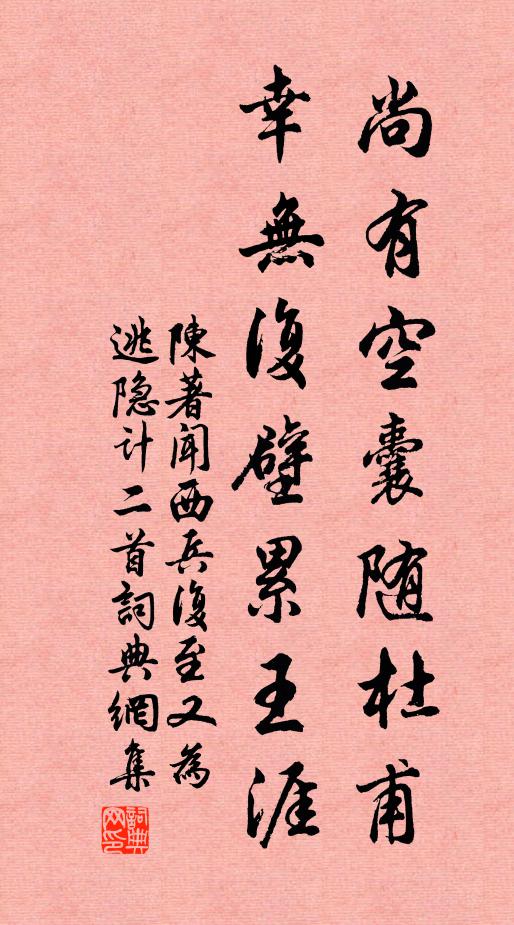 尚有空囊随杜甫
幸無復壁累王涯
陳著闻西兵復至又為
逃隐计二首詞典網集
詞典
网印